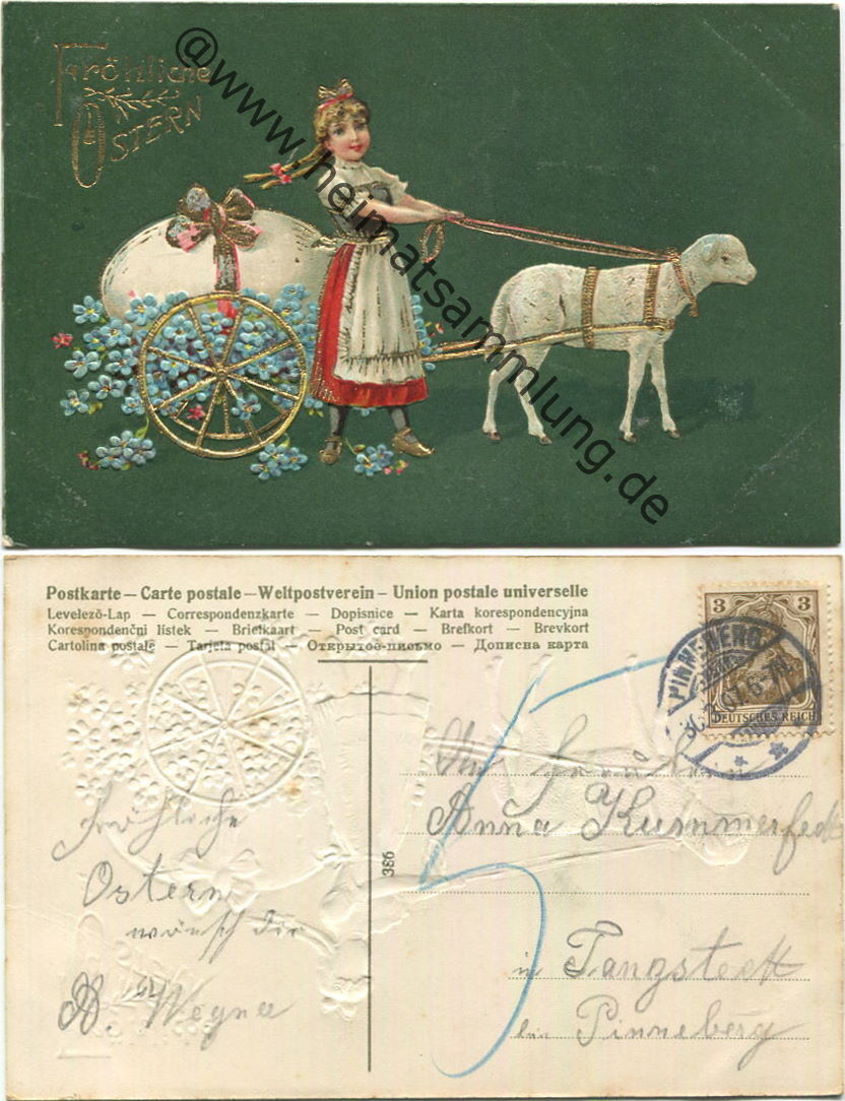 Fröhliche
OSTERN
@www.heimatsammlung.de
Postkarte — Carte postale — Weltpostverein — Union postale universelle
Levelező-Lap — Correspondenzkarte — Dopisnice — Karta korespondencyjna
Korespondenčni lístek — Briefkaart — Post card — Brefkort — Brevkort
Cartolina postale — Tarjeta postal — Открытое-письмо — Дописна карта
3 3
DEUTSCHES REICH
PINNEBERG
07. 6-7N
5
Fröhliche
Ostern
wünsch dir
A. Wegner
386
An Fräulein
Anna Kummerfeldt
in Tangstedt
bei Pinneberg